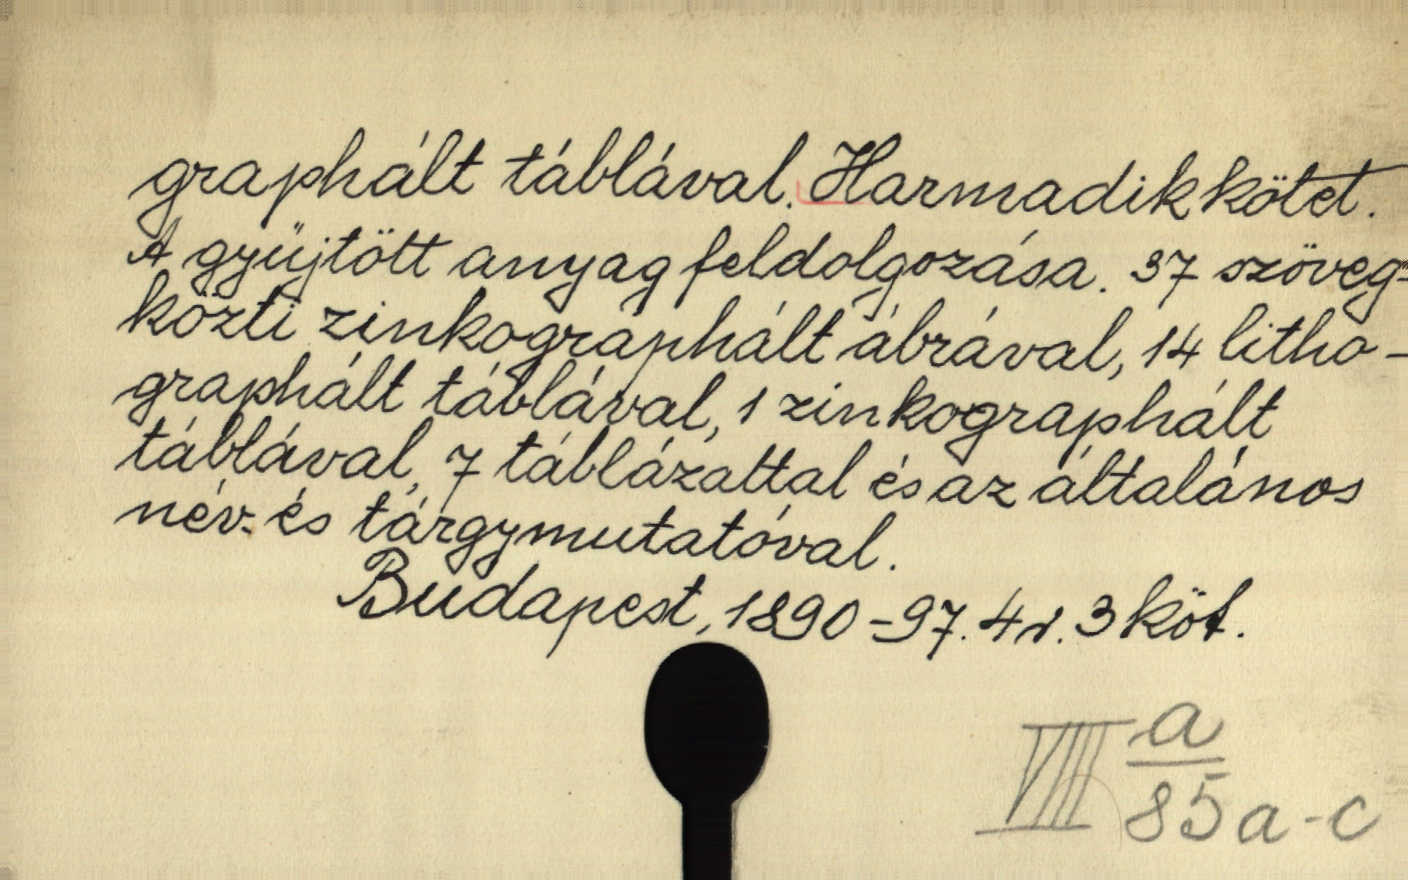 graphált táblával. Harmadik kötet.
A gyüjtött anyag feldolgozása. 37 szöveg=
közti zinkographált ábrával, 14 litho-
graphált táblával, 1 zinkographált
táblával, 7 táblázattal és az általános
név- és tárgymutatóval.
Budapest, 1890-97. 4r. 3 köt.
VIII a
85a-c